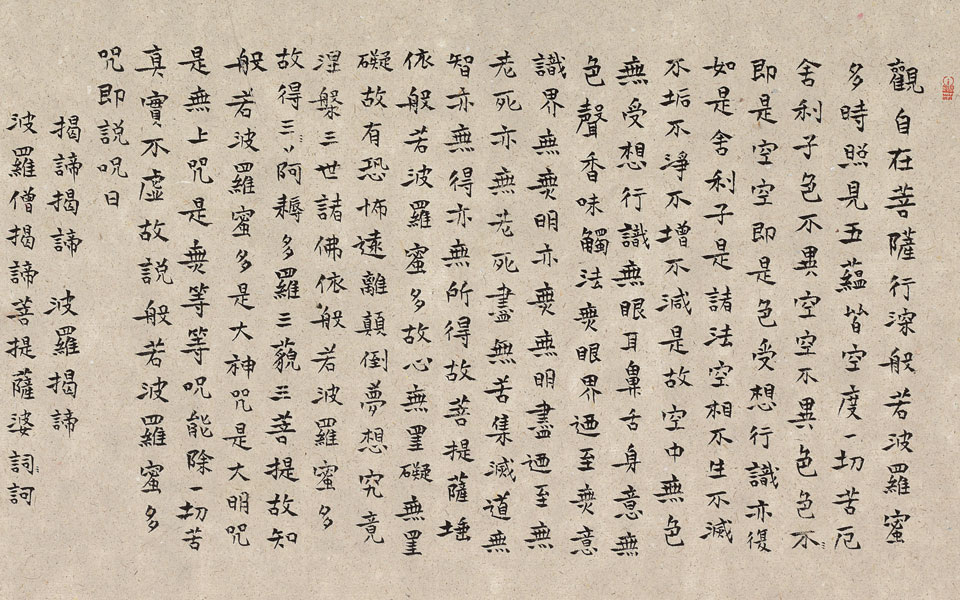 觀自在菩薩行深般若波羅蜜
多時照見五蘊皆空度一切苦厄
舍利子色不異空空不異色色不
即是空空即是色受想行識亦復
如是舍利子是諸法空相不生不滅
不垢不淨不增不減是故空中無色
無受想行識無眼耳鼻舌身意無
色聲香味觸法無眼界迺至無意
識界無無明亦無無明盡迺至無
老死亦無老死盡無苦集滅道無
智亦無得亦無所得故菩提薩埵
依般若波羅蜜多故心無罣礙無罣
礙故有恐怖遠離顛倒夢想究竟
涅槃三世諸佛依般若波羅蜜多
故得三阿耨多羅三藐三菩提故知
般若波羅蜜多是大神咒是大明咒
是無上咒是無等等咒能除一切苦
真實不虛故說般若波羅蜜多
咒即說咒曰
揭諦揭諦 波羅揭諦
波羅僧揭諦菩提薩婆詞訶